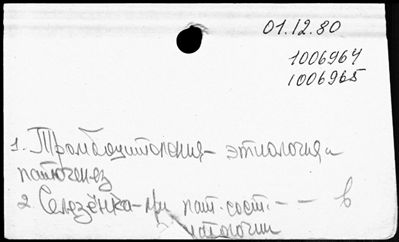 01.12.80
1006964
1006965
1. Тромбоцитопения - этиология и
патогенез
2. Селезёнка - при пат. сост. - - в
патологии